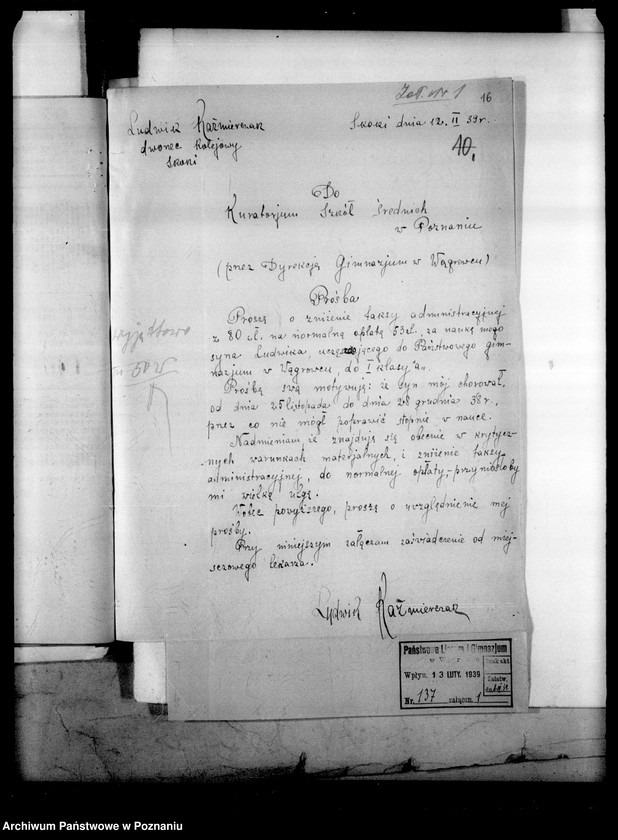 Zał. Nr 1
16
Ludwik Kaźmierczak
dworzec kolejowy
Skoki
Skoki dnia 12. II 39r.
40,
Do
Kuratorjum Szkół Średnich
w Poznaniu
(przez Dyrekcję Gimnazjum w Wągrowcu)
Prośba
Proszę o zniżenie taksy administracyjnej
z 80 zł. na normalną opłatę 53 zł., za naukę mego
syna Ludwika, uczęszczającego do Państwowego gim-
nazjum w Wągrowcu, do I klasy "a".
Prośbę swą motywuję: że syn mój chorował,
od dnia 25 listopada do dnia 28 grudnia 38 r.,
przez co nie mógł poprawić stopnie w nauce.
Nadmieniam, że znajduję się obecnie w krytycz-
nych warunkach materjalnych, i zniżenie taksy
administracyjnej, do normalnej opłaty, - przyniosłoby
mi wielką ulgę.
Wobec powyższego, proszę o uwzględnienie mej
prośby.
Przy niniejszym załączam zaświadczenie od miej-
scowego lekarza.
Ludwik Kaźmierczak
wyjątkowo
50 zł
Państwowe Liceum i Gimnazjum
w
Wpłyn. 13 LUTY. 1939
Nr. 137 załączn. 1
Znak akt
Załatw.
Archiwum Państwowe w Poznaniu